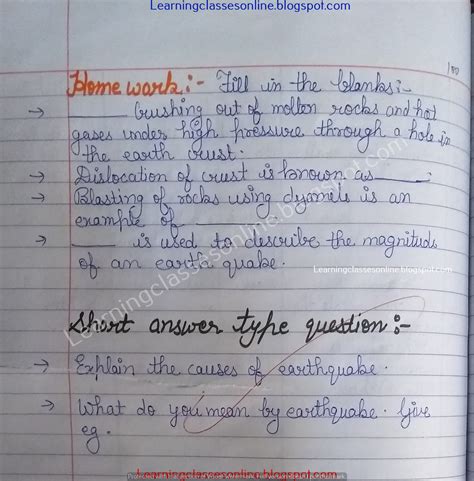 Learningclassesonline.blogspot.com
100
Home work:- Fill in the blanks:-
→ ______ Gushing out of molten rocks and hot
gases under high pressure through a hole in
the earth crust.
→ Dislocation of crust is known as ____.
→ Blasting of rocks using dynmels is an
example of ______
→ ____ is used to describe the magnituds
of an earth quake.
Learningclassesonline.blogspot.com
Learningclassesonline.blogspot.com
Short answer type question:-
→ Explain the causes of earthquake.
→ What do you mean by earthquake. Give
eg.
Learningclassesonline.blogspot.com